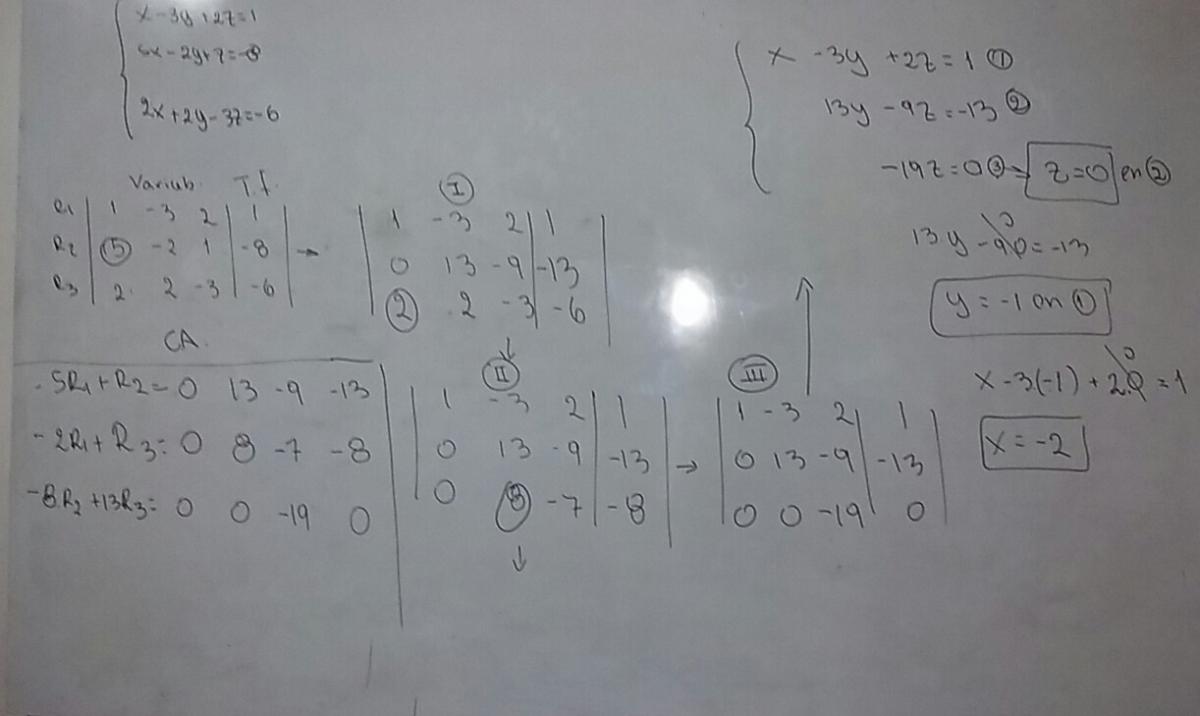 x - 3y + 2z = 1
5x - 2y + z = -8
2x + 2y - 3z = -6
Variab. T.I.
R1 1 -3 2 | 1
R2 5 -2 1 | -8 →
R3 2 2 -3 | -6
I
1 -3 2 | 1
0 13 -9 | -13
2 2 -3 | -6
↓
CA.
-5R1 + R2 = 0 13 -9 -13
-2R1 + R3: 0 8 -7 -8
-8R2 + 13R3 = 0 0 -19 0
II
1 -3 2 | 1
0 13 -9 | -13 →
0 8 -7 | -8
↓
III
1 -3 2 | 1
0 13 -9 | -13
0 0 -19 | 0
↑
x - 3y + 2z = 1 ①
13y - 9z = -13 ②
-19z = 0 ③ z = 0 en ②
13y - 9.0 = -13
0
y = -1 en ①
0
x - 3(-1) + 2.0 = 1
x = -2